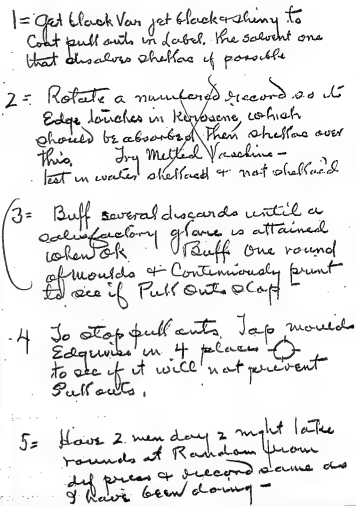 1 = Get black Var jet black & shiny to
Coat pull outs in Label. the solvent one
that disolves shellac if possible
2 = Rotate a numbered record so its
Edge touches in Kerosene, which
should be absorbed, then shellac over
this. Try Melted Vaseline -
test in water shellaced & not shellac'd
3 = Buff several discards until a
satisfactory glare is attained
when OK Buff One round
of moulds & Continuously print
to see if Pull Outs stop -
4 To stop pull outs. Tap moulds
Edgewise in 4 places
to see if it will not prevent
Pull outs.
5 = Have 2 men day 2 night take
rounds at Random from
dif press & record same as
I have been doing -